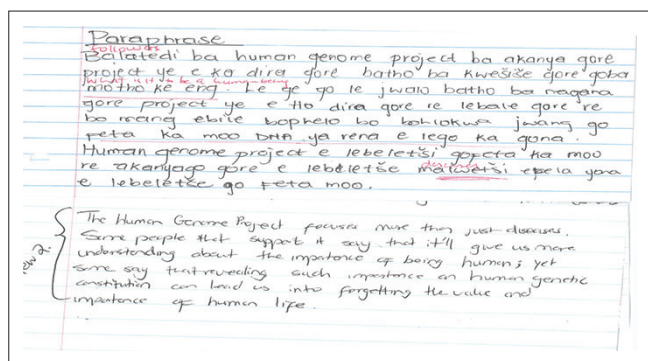 Paraphrase
followers
Balatedi ba human genome project ba akanya gore
project ye e ka dira gore batho ba kwešiše gore goba
what is it to be a human being
motho ke eng. Le ge go le jwalo batho ba nagana
gore project ye e tlo dira gore re lebale gore re
bo mang ebile bophelo bo bohlokwa jwang go
feta ka moo DNA ya rena e lego ka gona.
Human genome project e lebeletši gopeta ka moo
diseases
re akanyago gore e lebeletše malwetši epela yona
e lebeletše go feta moo.
The Human Genome Project focuses more than just diseases.
Some people that support it say that it'll give us more
understanding about the importance of being human; yet
some say that revealing such importance on human genetic
constitution can lead us into forgetting the value and
importance of human life.